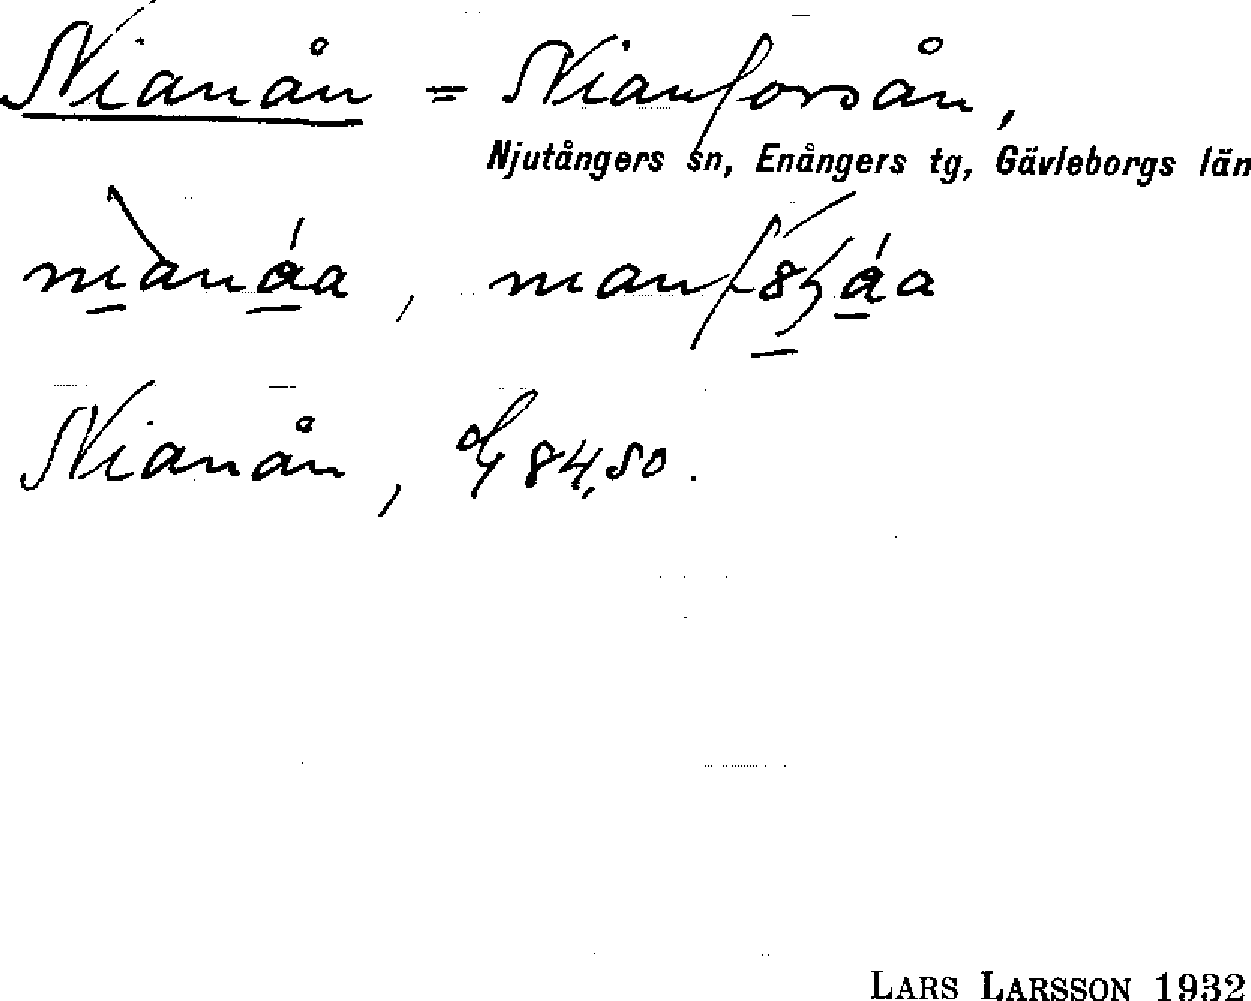 Nianån = Nianforsån,
Njutångers sn, Enångers tg, Gävleborgs län
Nianån, 84,50.
LARS LARSSON 1932